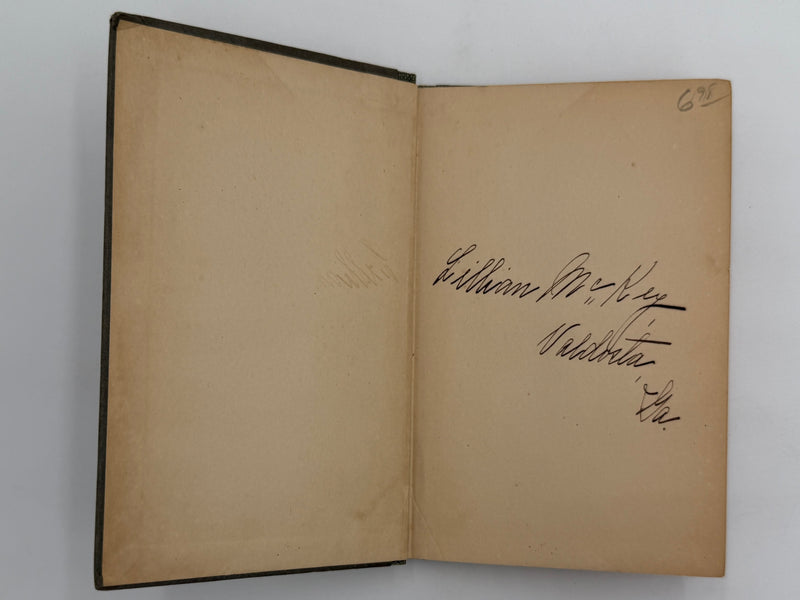 6 98
Lillian McKey,
Valdosta,
Ga.